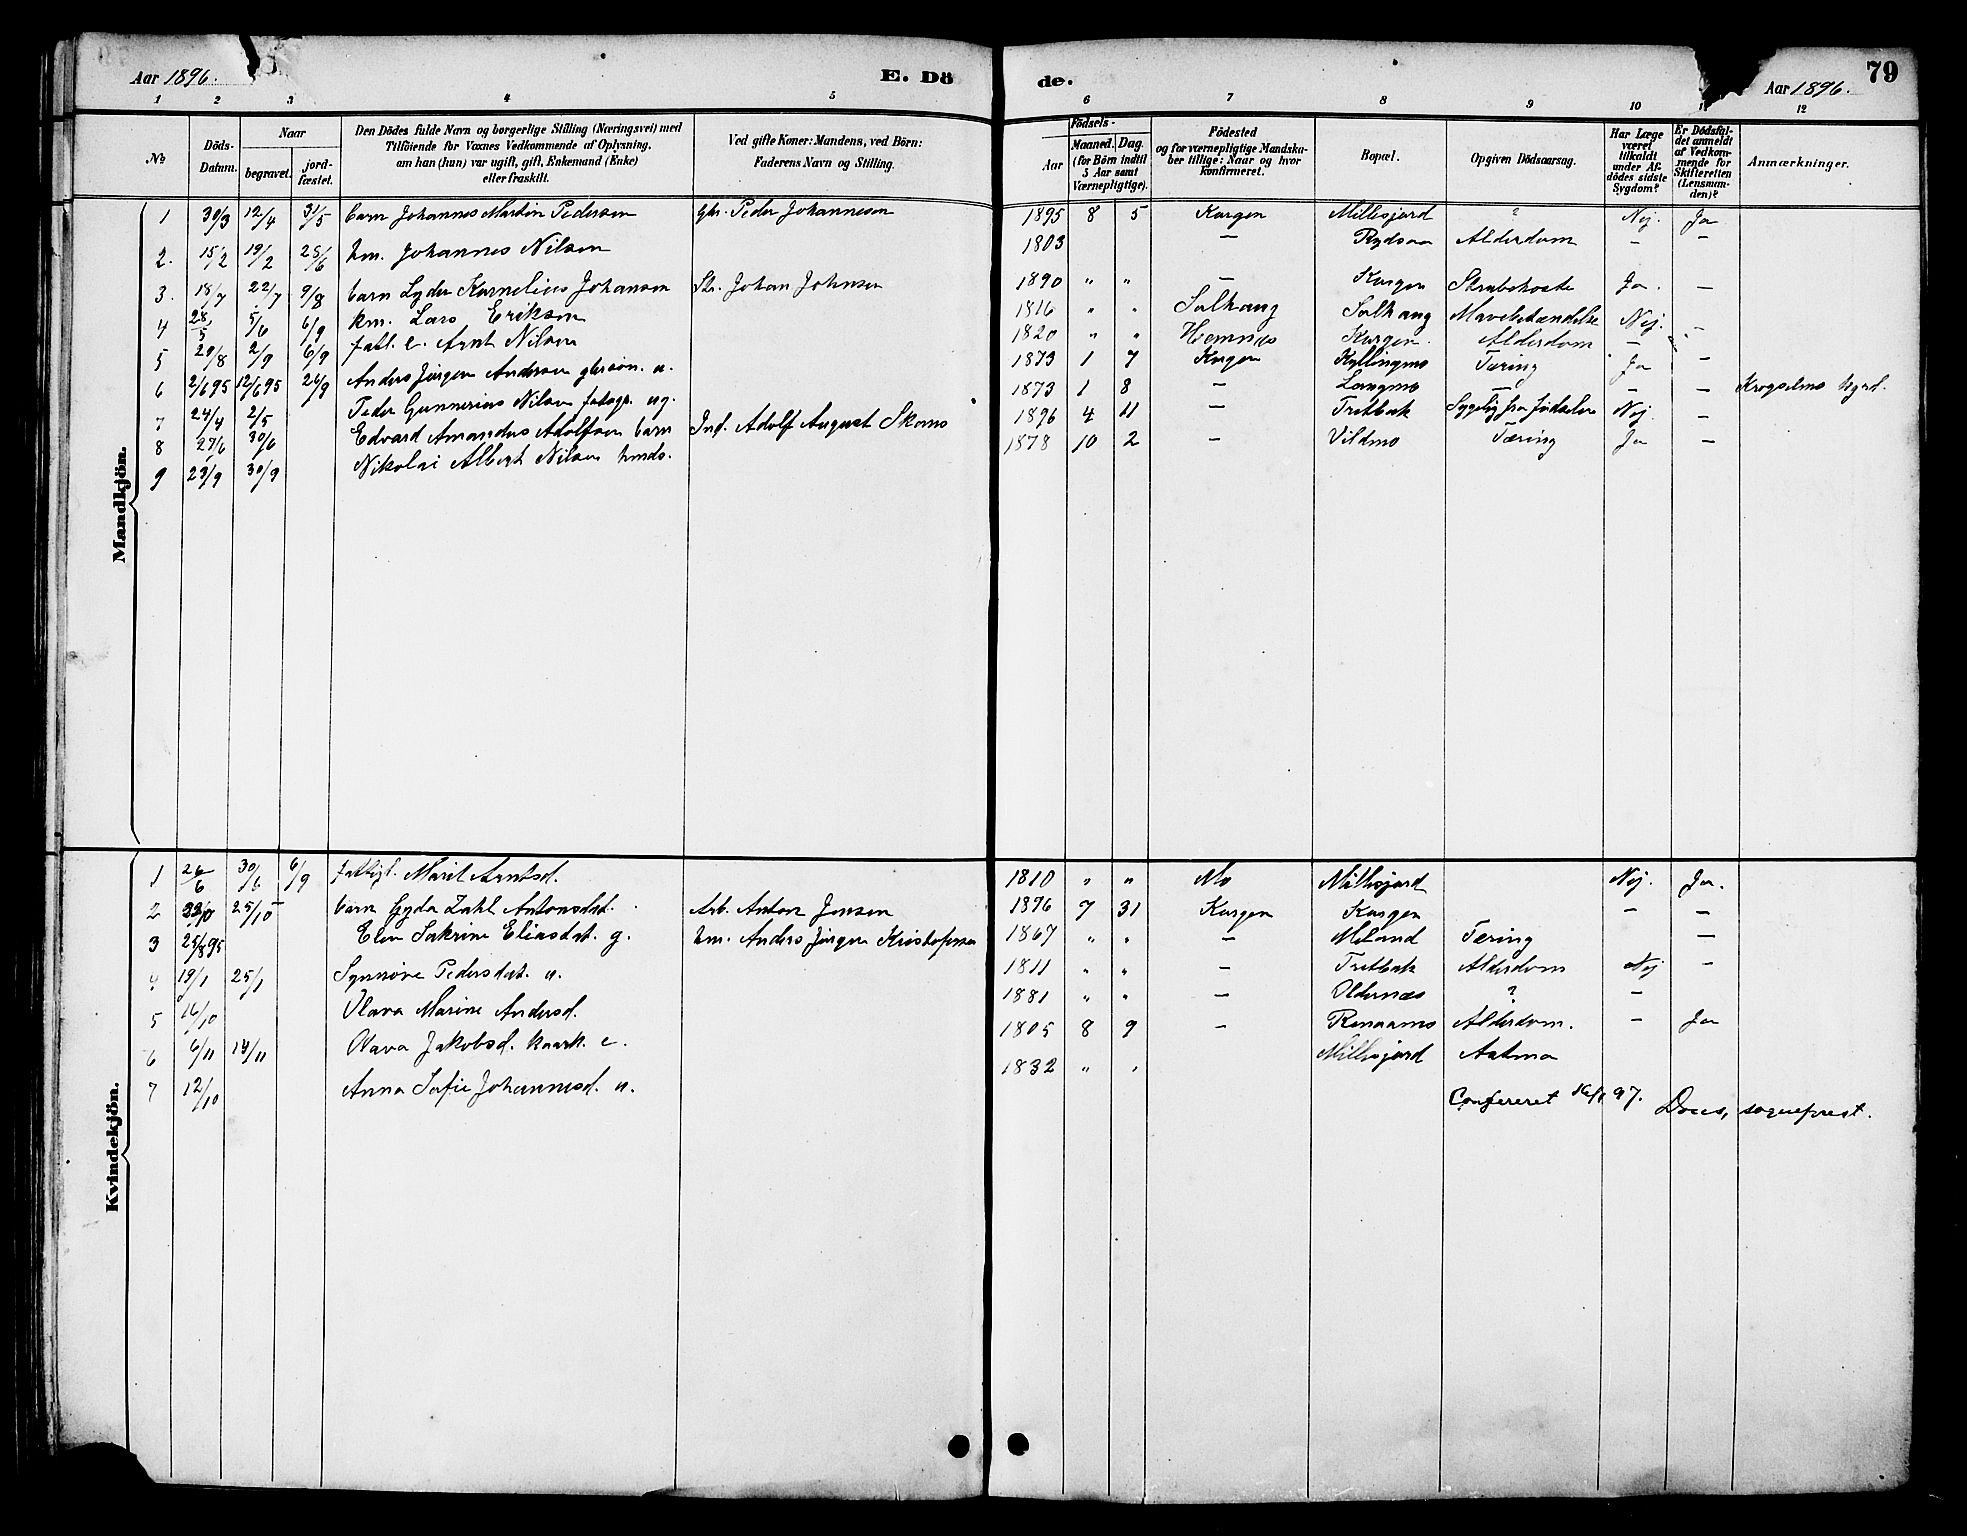 Aar 1896. E. Dö de. Aar 1896. 79
1 2 3 4 5 6 7 8 9 10 12
No
Döds-Datum.
Naar
begravet.
jord-fæstet.
Den Dödes fulde Navn og borgerlige Stilling (Næringsvei) med
Tilföiende for Voxnes Vedkommende af Oplysning,
om han (hun) var ugift, gift, Enkemand (Enke)
eller fraskilt.
Ved gifte Koner: Mandens, ved Börn:
Faderens Navn og Stilling.
Födsels-
Aar
Maaned. Dag.
(for Börn indtil
5 Aar samt
Værnepligtige).
Födested
og for værnepligtige Mandska-
ber tillige: Naar og hvor
konfirmeret.
Bopæl.
Opgiven Dödsaarsag.
Har Læge
været
tilkaldt
under Af-
dödes sidste
Sygdom?
Er Dödsfal-
det anmeldt
af Vedkom-
mende for
Skifteretten
(Lensman-
den)?
Anmærkninger.
Mandkjön.
1 30/3 12/4 3/5 barn Johannes Martin Pedersen Gbr. Peder Johannesen 1895 8 5 Korgen Millesjord ? Nej. Ja
2. 15/2 19/2 25/6 hm. Johannes Nilsen 1803 — Rydsaa Alderdom — —
3. 18/7 22/7 9/8 barn Lyder Kornelius Johansen Str. Johan Johnsen 1890 " " — Korgen Strubehoste Ja. —
4 28/5 5/6 6/9 km. Lars Eriksen 1816 " " Solhaug Solhaug Mavebetændelse Nej. —
5 29/8 2/9 6/9 fatl. e. Arnt Nilsen 1820 " " Hemnes Korgen. Alderdom —
6 2/6 95 12/6 95 26/8 Anders Jørgen Andersen gbrsøn. u. 1873 1 7 Korgen Kyllingmo Tæring Ja —
7 24/4 2/5 Peder Gunnerius Nilsen ug. 1873 1 8 — Langmo — — — Krogselmo
8 27/6 30/6 Edvard Amandus Adolfsen barn Ind. Adolf August Skomo 1896 4 11 — Tretbak Sygelig fra fødselen Nej. —
9 23/9 30/9 Nikolai Albert Nilsen hmds. 1878 10 2 — Vildmo Tæring Ja —
Kvindekjön.
1 26/6 30/6 6/9 fattigl. Marit Arntsd. 1810 " " Mo Millesjord Nej. Ja.
2 25/10 barn Gyda Zahl Antonsdat. Arb. Anton Jensen 1896 7 31 Korgen Korgen — —
3 25/8 95 Elen Sakrine Eliasdat. g. hm. Anders Jørgen Kristofersen 1867 " " — Moland Tæring —
4 19/1 25/1 Synnøve Pedersdat. u. 1811 " " — Tretbak Alderdom Nej —
5 16/10 Olava Marine Andersd. 1881 " " — Oldernæs ? —
6 6/11 14/11 Olava Jakobsd. kaark. e. 1805 8 9 — Alderdom. — Ja
7 12/10 Anna Sofie Johannesd. u. 1832 " " Millesjord Astma
Confereret 16/1 97. sogneprest.